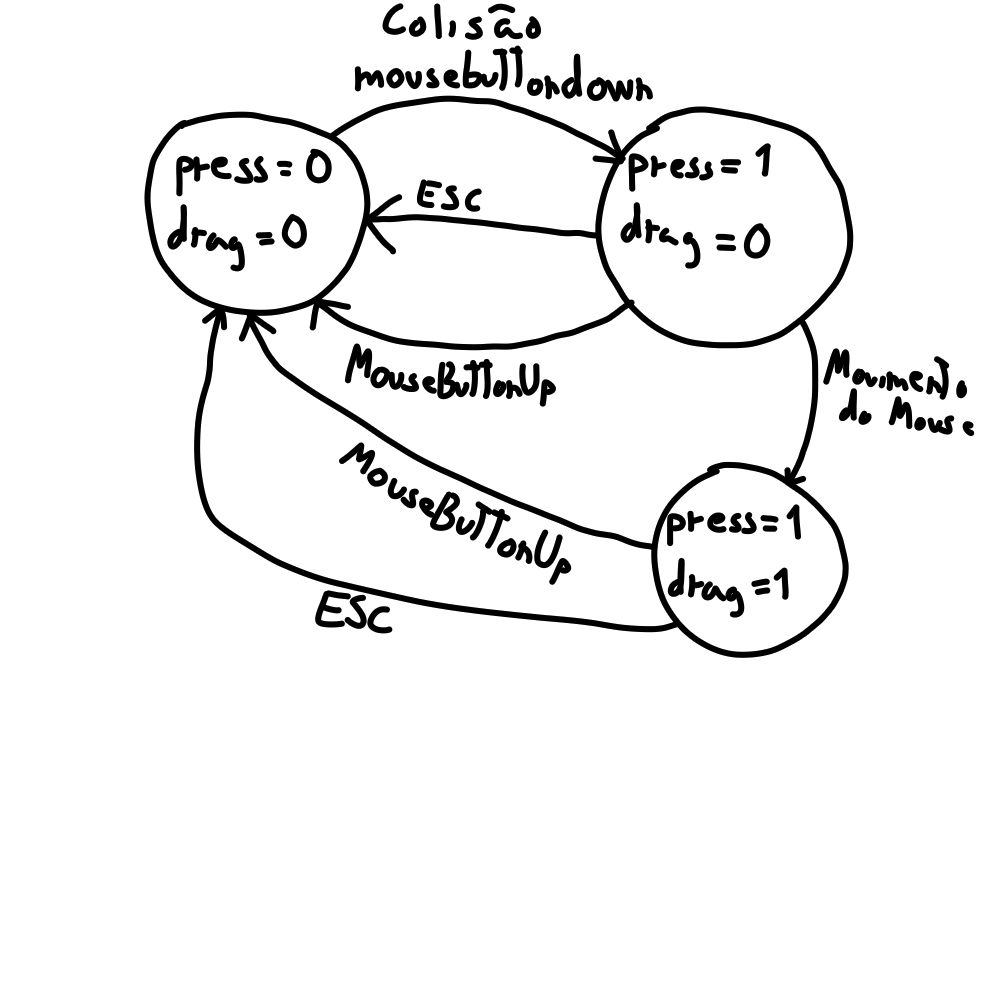 Colisão
mousebuttondown
press = 0
drag = 0
press = 1
drag = 0
ESC
MouseButtonUp
Movimento
do Mouse
MouseButtonUp
press = 1
drag = 1
ESC